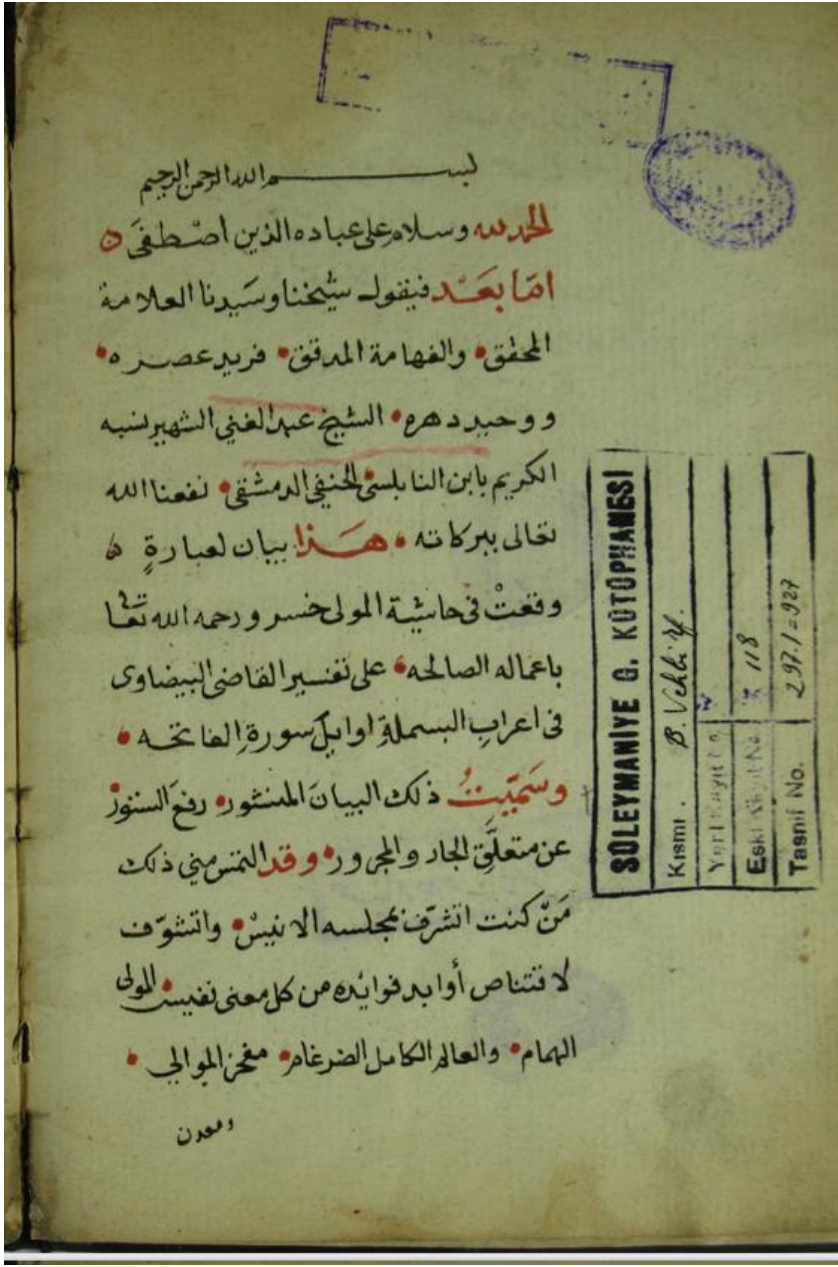 بسم الله الرحمن الرحيم
الحمد لله وسلام على عباده الذين اصْطفَى
امّا بعَد فيقول شيخنا وسَيدنا العلامة
المحقق • والفهامة المدقق • فريد عصره •
ووحيد دهره • الشيخ عبد الغني الشهير نسبه
الكريم بابن النابلسى • الحنفي الدمشقى • نفعنا الله
تعالى ببركاته • هَذا بيان لعبارةٍ
وقعتْ في حاشية المولى خسرو رحمه الله تعا
باعماله الصالحه • على تفسير القاضى البيضاوى
فى اعرابِ البسملةِ اوايل سورةِ الفاتحه •
وسَميّتُ ذلك البيانَ المنثور • رفع الستور
عن متعلَّق الجار والمجرور • وقد التمس مني ذلك
مَنْ كنت اتشرّف بمجلسه الانيسْ • واتشوّف
لاقتناص أوابد فوائده من كل معنى نفيس • المولى
الهمام • والعالم الكامل الضرغام • مفخر الموالي •
ومعدن
SÜLEYMANİYE G. KÜTÜPHANESİ
Kısmı . B. Vehbi ef.
Yeni Kayıt No.
Eski Kayıt No. 118
Tasnif No. 297.1=927